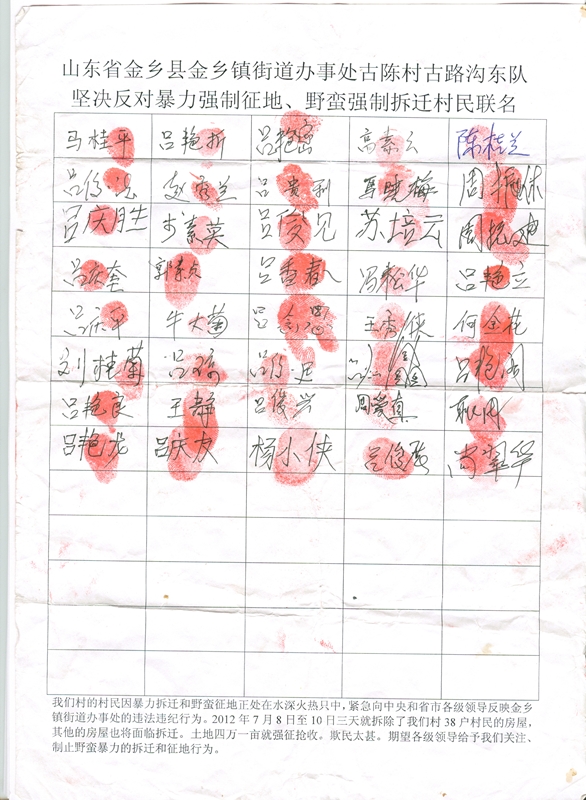 山东省金乡县金乡镇街道办事处古陈村古路沟东队
坚决反对暴力强制征地、野蛮强制拆迁村民联名
马桂平 吕艳折 吕艳 高素云 陈桂兰
吕俊法 赵秀兰 吕贵利 晓梅 周
吕庆胜 素莫 吕俊兄 苏培云 周
吕庆奎 郭 吕香春 冯松华 吕艳立
吕庆平 牛大菊 吕 王秀侠 何金花
刘桂菊 吕 吕俊廷 吕艳阁
吕艳良 王静 吕俊兴 周爱真 耿
吕艳龙 吕庆友 杨小侠 吕俊 尚翠华
我们村的村民因暴力拆迁和野蛮征地正处在水深火热只中，紧急向中央和省市各级领导反映金乡
镇街道办事处的违法违纪行为。2012 年 7 月 8 日至 10 日三天就拆除了我们村 38 户村民的房屋，
其他的房屋也将面临拆迁。土地四万一亩就强征抢收。欺民太甚。期望各级领导给予我们关注、
制止野蛮暴力的拆迁和征地行为。